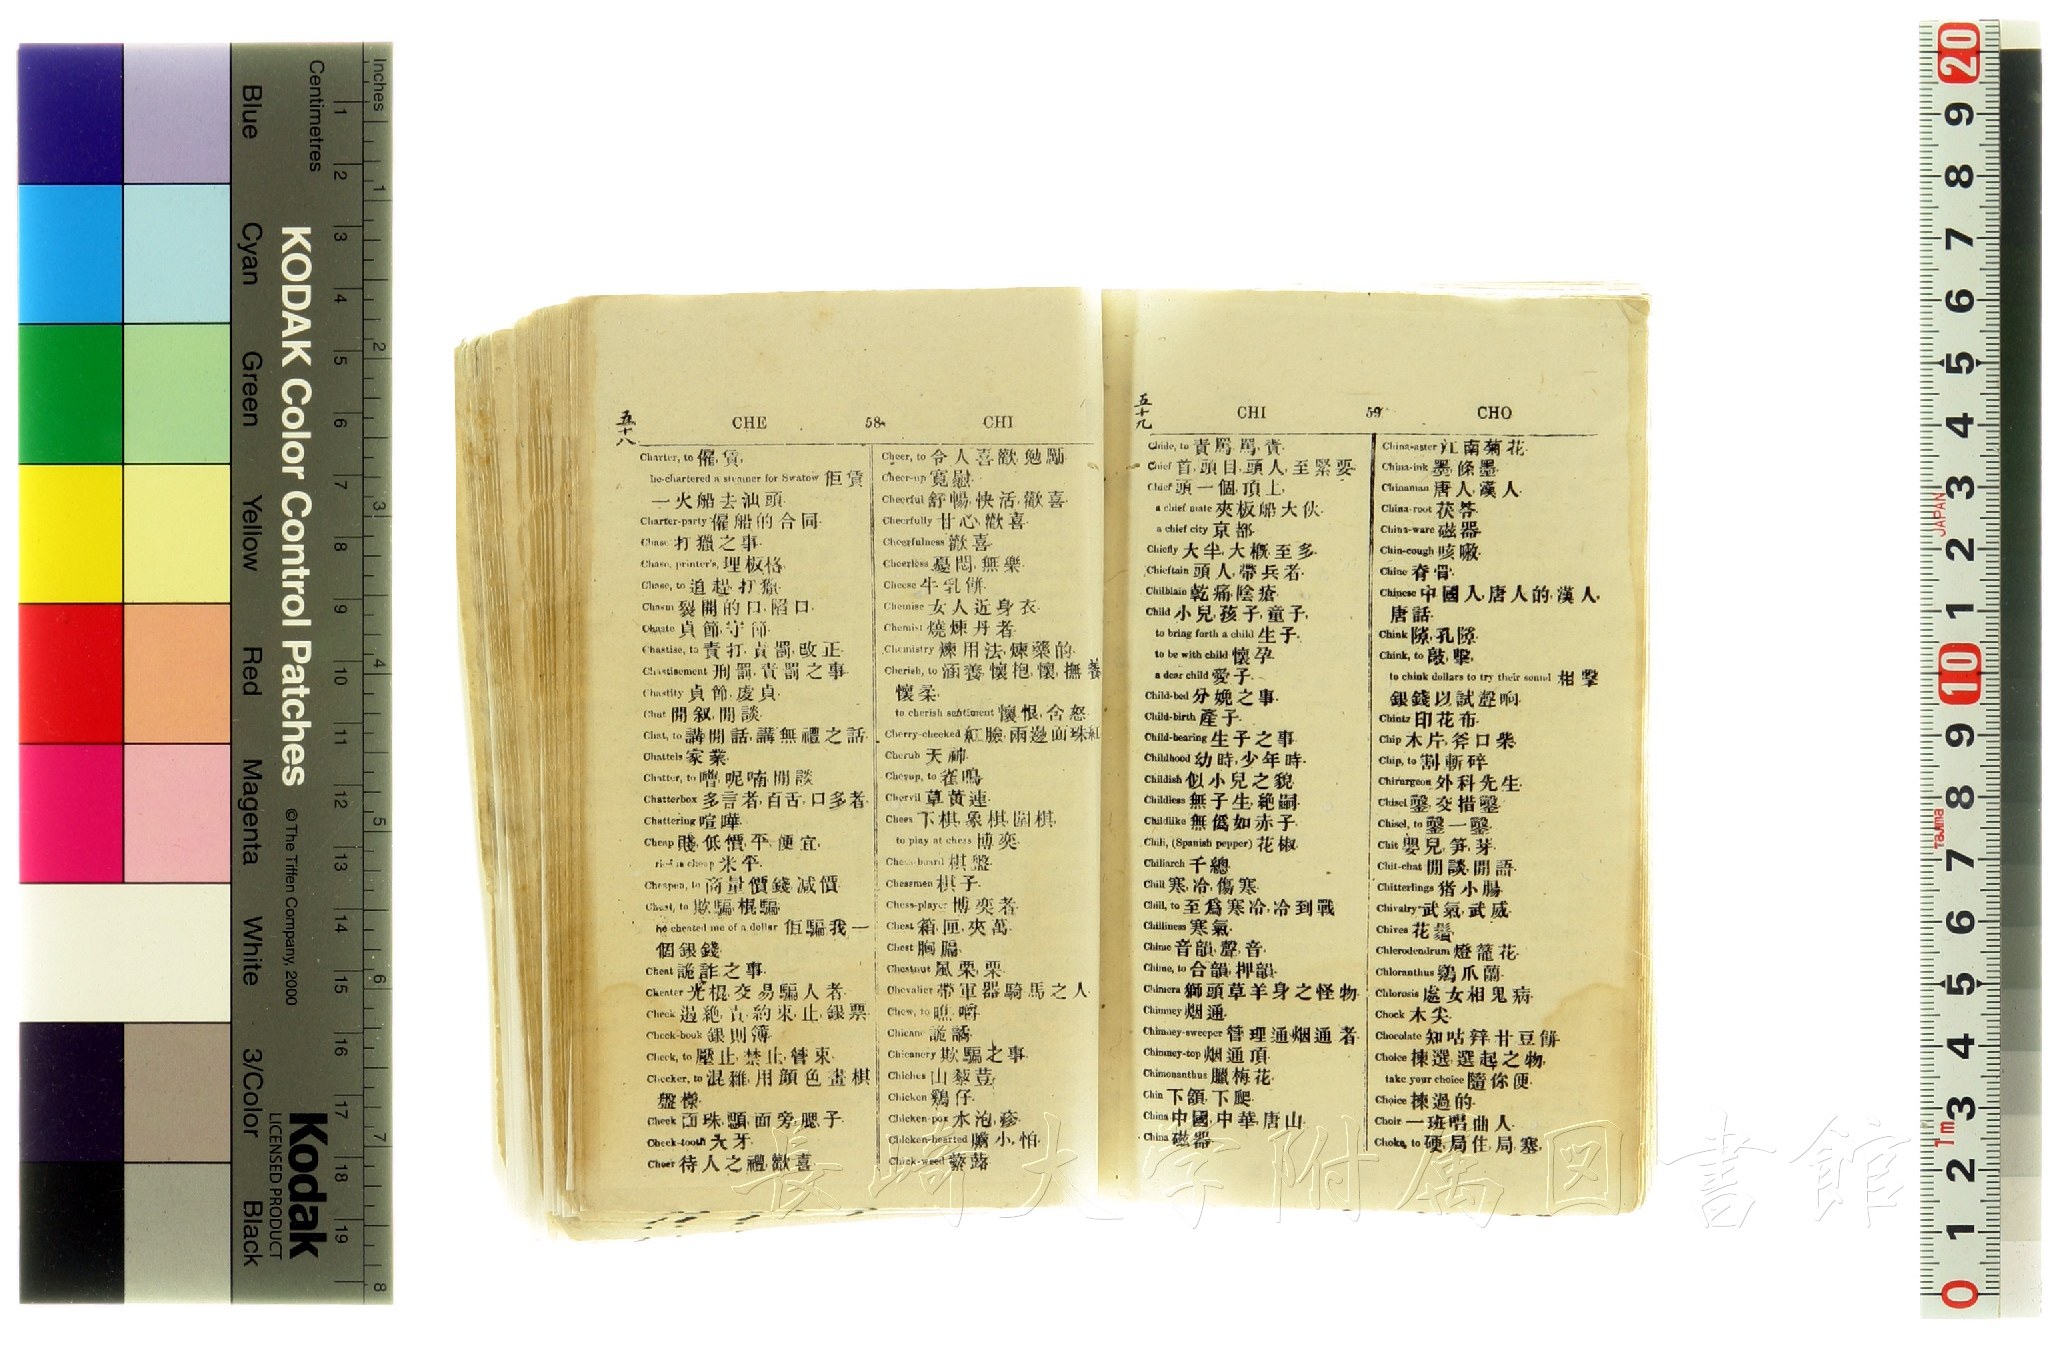 Inches
Centimetres
KODAK Color Control Patches
© The Tiffen Company, 2000
Blue
Cyan
Green
Yellow
Red
Magenta
White
3/Color
Black
Kodak
LICENSED PRODUCT
五十八
CHE 58 CHI
Charter, to 僱,賃,
be chartered a steamer for Swatow 佢賃
一火船去汕頭
Charter-party 僱船的合同
Chase 打獵之事
Chase, printer's, 理板格
Chase, to 追趕,打獵
Chasm 裂開的口,陷口
Chaste 貞節,守節
Chastise, to 責打,責罰,改正
Chastisement 刑罰,責罰之事
Chastity 貞節,處貞
Chat 閒叙,閒談
Chat, to 講閒話,講無禮之話
Chattels 家業
Chatter, to 嘈,呢喃,閒談
Chatterbox 多言者,百舌,口多者
Chattering 喧嘩
Cheap 賤,低價,平,便宜
rice is cheap 米平
Cheapen, to 商量價錢,减價
Cheat, to 欺騙,棍騙
he cheated me of a dollar 佢騙我一
個銀錢
Cheat 詭詐之事
Cheater 光棍,交易騙人者
Check 遏絶,責,約束,止,銀票
Check-book 銀則簿
Check, to 壓止,禁止,管束
Checker, to 混雜,用顏色畫棋
盤樣
Cheek 面珠,顋,面旁,腮子
Cheek-tooth 大牙
Cheer 待人之禮,歡喜
Cheer, to 令人喜歡,勉勵
Cheer-up 寬慰
Cheerful 舒暢,快活,歡喜
Cheerfully 甘心,歡喜
Cheerfulness 歡喜
Cheerless 憂悶,無樂
Cheese 牛乳餅
Chemise 女人近身衣
Chemist 燒煉丹者
Chemistry 煉用法,煉藥的
Cherish, to 涵養,懷抱,懷,撫養
懷柔
to cherish sentiment 懷恨,含怒
Cherry-cheeked 紅臉,兩邊面珠紅
Cherub 天神
Cheyup, to 雀鳴
Chervil 草黃連
Chess 下棋,象棋,圍棋
to play at chess 博奕
Chess-board 棋盤
Chessmen 棋子
Chess-player 博奕者
Chest 箱,匣,夾萬
Chest 胸膈
Chestnut 風栗,栗
Chevalier 帶軍器騎馬之人
Chew, to 噍,嚼
Chicane 詭譎
Chicanery 欺騙之事
Chiches 山藜荳
Chicken 鷄仔
Chicken-pox 水泡疹
Chicken-hearted 膽小,怕
Chick-weed 蘩蔞
五十九
CHI 59 CHO
Chide, to 責罵,罵,責
Chief 首,頭目,頭人,至緊要
Chief 頭一個,頂上
a chief mate 夾板船大伙
a chief city 京都
Chiefly 大半,大概,至多
Chieftain 頭人,帶兵者
Chilblain 乾痛,陰瘡
Child 小兒,孩子,童子
to bring forth a child 生子
to be with child 懷孕
a dear child 愛子
Child-bed 分娩之事
Child-birth 產子
Child-bearing 生子之事
Childhood 幼時,少年時
Childish 似小兒之貌
Childless 無子生,絶嗣
Childlike 無僞如赤子
Chili, (Spanish pepper) 花椒
Chiliarch 千總
Chill 寒,冷,傷寒
Chill, to 至爲寒冷,冷到戰
Chilliness 寒氣
Chime 音韻,聲音
Chime, to 合韻,押韻
Chimera 獅頭草羊身之怪物
Chimney 烟通
Chimney-sweeper 管理通烟通者
Chimney-top 烟通頂
Chimonanthus 臘梅花
Chin 下頷,下爬
China 中國,中華,唐山
China 磁器
China-aster 江南菊花
China-ink 墨,條墨
Chinaman 唐人,漢人
China-root 茯苓
China-ware 磁器
Chin-cough 咳嗽
Chine 脊骨
Chinese 中國人,唐人的,漢人
唐話
Chink 隙,孔隙
Chink, to 敲,擊
to chink dollars to try their sound 相擊
銀錢以試聲响
Chintz 印花布
Chip 木片,斧口柴
Chip, to 割,斬碎
Chirurgeon 外科先生
Chisel 鑿,交揩鑿
Chisel, to 鑿一鑿
Chit 嬰兒,笋,芽
Chit-chat 閒談,閒語
Chitterlings 猪小腸
Chivalry 武氣,武威
Chives 花鬚
Chlerodendrum 燈籠花
Chloranthus 鷄爪蘭
Chlorosis 處女相鬼病
Chock 木尖
Chocolate 知咕辢,甘豆餅
Choice 揀選,選起之物
take your choice 隨你便
Choice 揀過的
Choir 一班唱曲人
Choke, to 硬,局住,局塞
長崎大学附属図書館
JAPAN
Tajima
1m